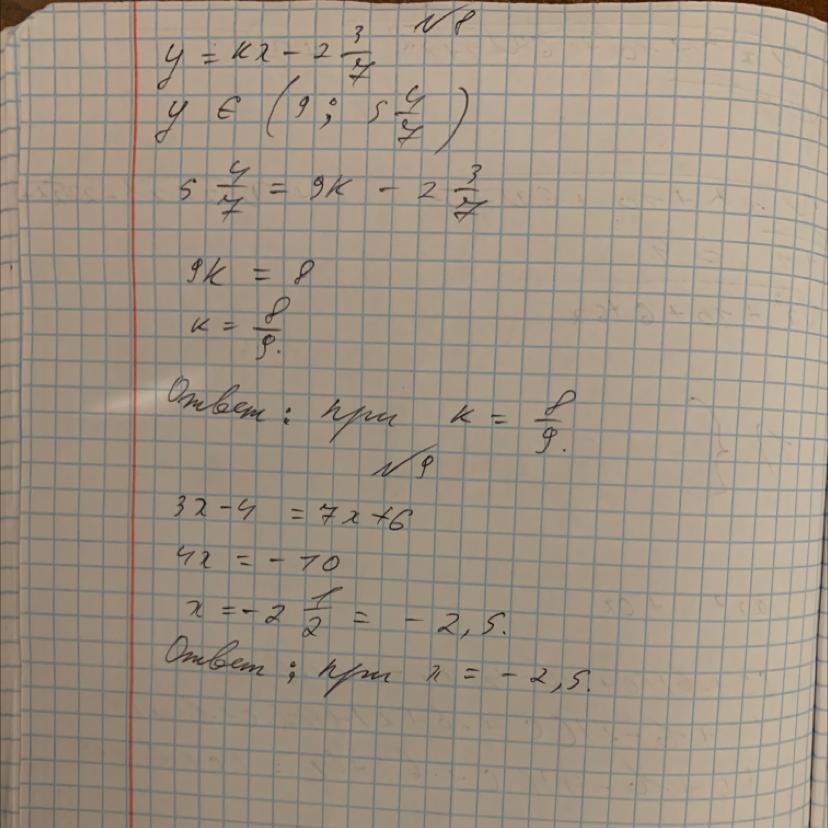 №8
y = kx - 2 3/7
y ∈ (9; 5 4/7)
5 4/7 = 9k - 2 3/7
9k = 8
k = 8/9.
Ответ: при k = 8/9.
№9
3x-4 = 7x+6
4x = -10
x = -2 1/2 = -2,5.
Ответ: при x = -2,5.